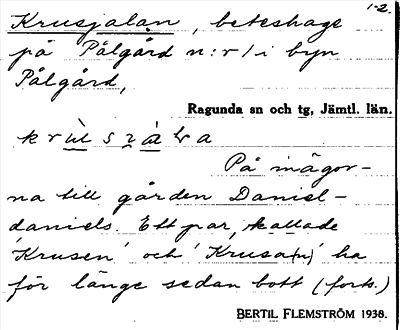 1-2.
Krusjalan, beteshage
på Pålgård n:r 1 i byn
Pålgård,
Ragunda sn och tg, Jämtl. län.
På inägor-
na till gården Daniel-
daniels. Ett par, kallade
'Krusen' och 'Krusa(n)' ha
för länge sedan bott (forts.)
BERTIL FLEMSTRÖM 1938.